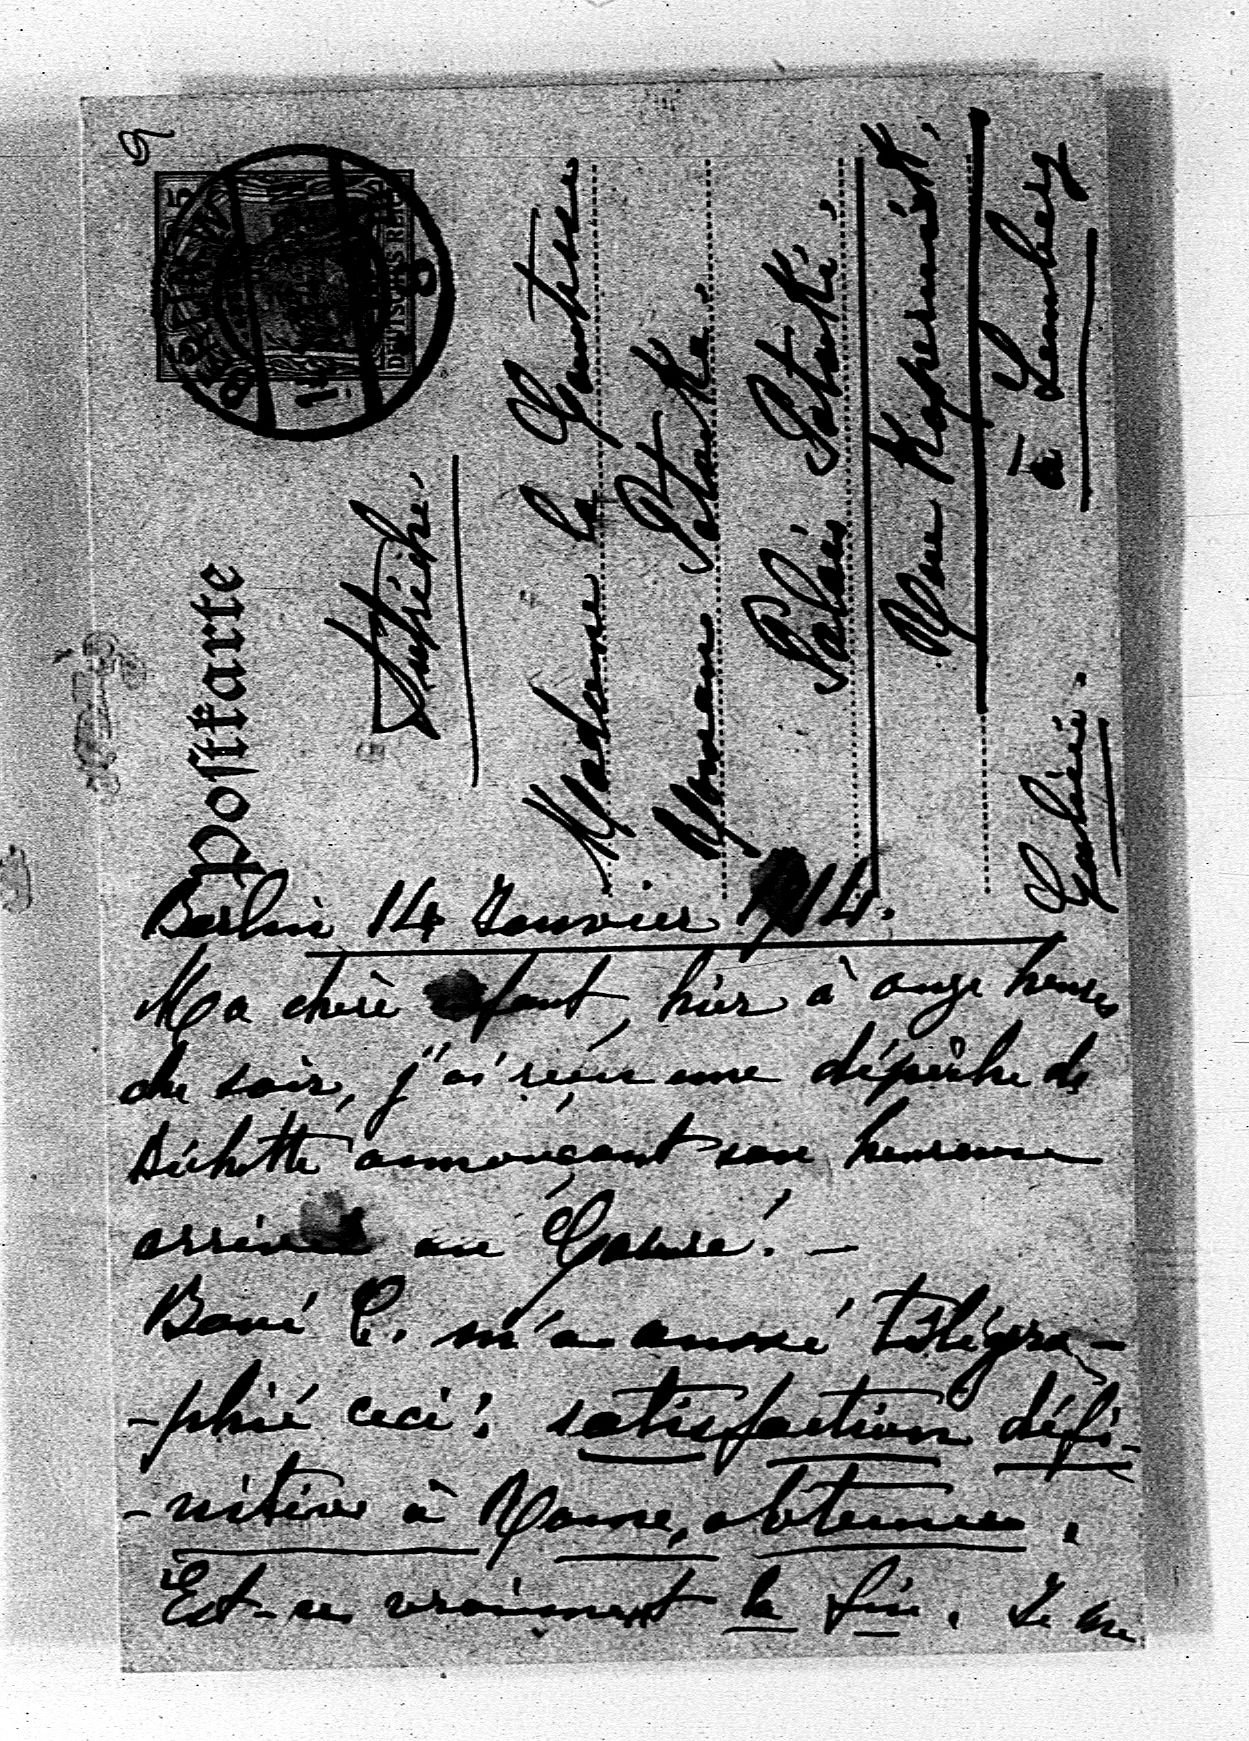 9
Postkarte
DEUTSCHES REICH
5
BERLIN W
8
14
Autriche.
Madame la Comtesse
Roman Potocka
Palais Potocki.
Rue Kopernick,
à Lemberg
Galicie.
Berlin 14 Janvier 1914.
Ma chère enfant, hier à onze heures
du soir, j'ai reçu une dépêche de
annonçant son heureuse
arrivée au Caire! —
m'a aussi télégra-
-phié ceci: satisfaction défi-
-nitive à Rome, obtenue.
Est-ce vraiment la fin. Je ne